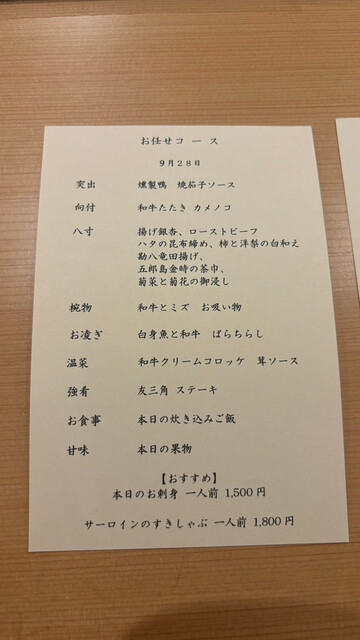 お任せコース
９月２８日
突出 燻製鴨 焼茄子ソース
向付 和牛たたき カメノコ
八寸 揚げ銀杏、ローストビーフ
ハタの昆布締め、柿と洋梨の白和え
勘八竜田揚げ、
五郎島金時の茶巾、
菊菜と菊花の御浸し
椀物 和牛とミズ お吸い物
お凌ぎ 白身魚と和牛 ばらちらし
温菜 和牛クリームコロッケ 茸ソース
強肴 友三角 ステーキ
お食事 本日の炊き込みご飯
甘味 本日の果物
【おすすめ】
本日のお刺身 一人前 1,500円
サーロインのすきしゃぶ 一人前 1,800円